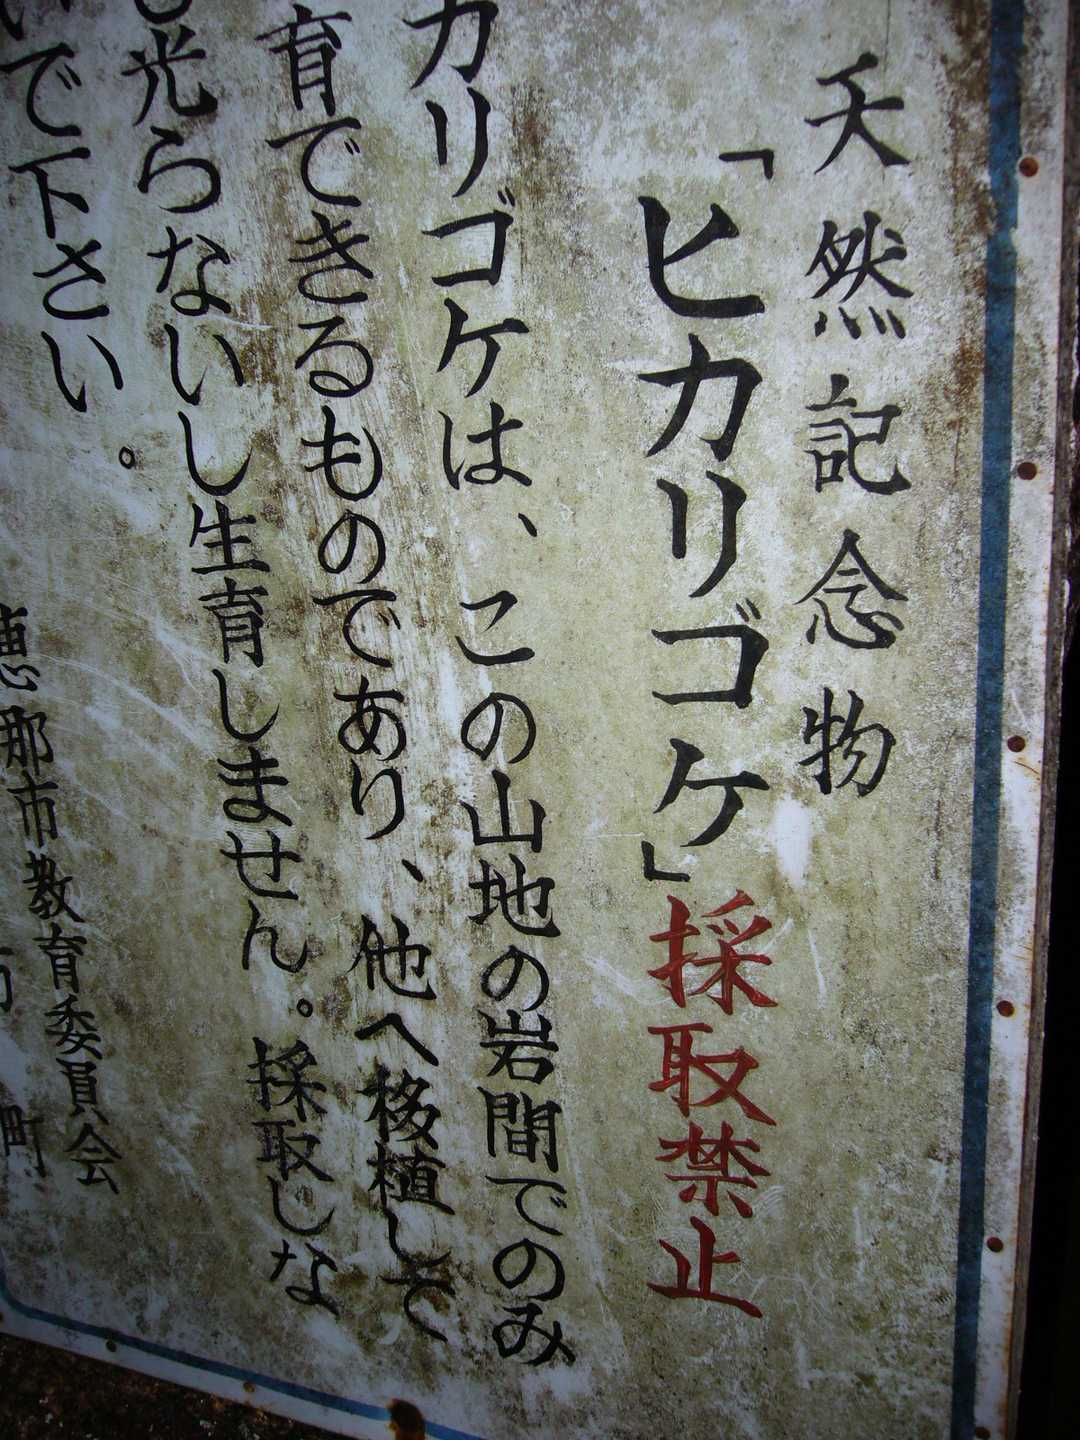 天然記念物
「ヒカリゴケ」採取禁止
カリゴケは、この山地の岩間でのみ
育できるものであり、他へ移植して
も光らないし生育しません。採取しな
いで下さい。
恵那市教育委員会
町